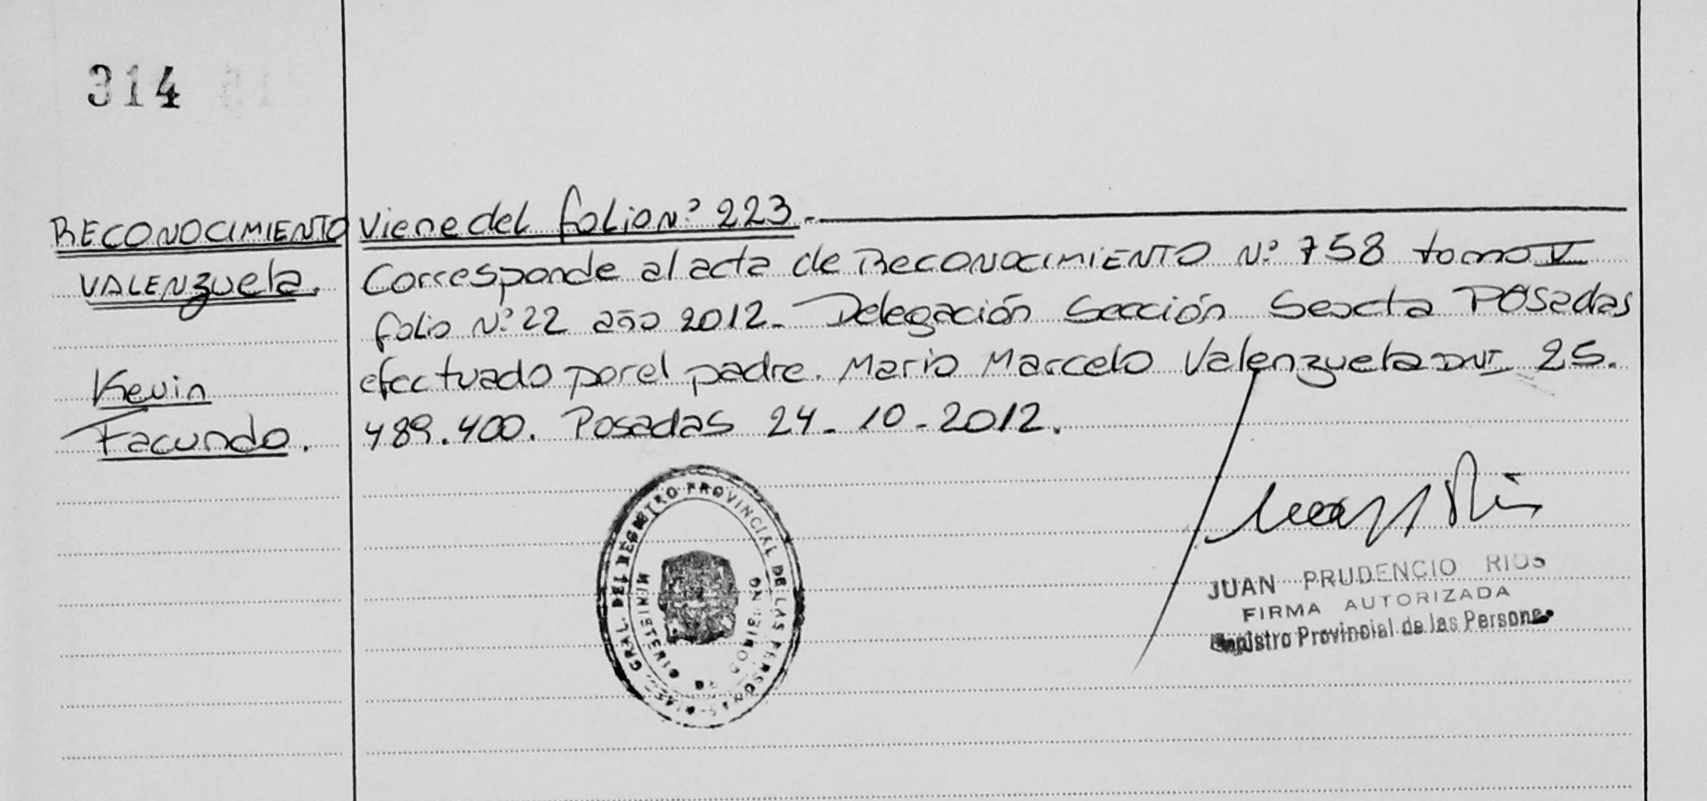 314
RECONOCIMIENTO
VALENzuela.
Kevin
Facundo.
Viene del folio Nº 223.-
Corresponde al acta de RECONOCIMIENTO Nº 758 tomo V
folio Nº 22 año 2012.- Delegación Sección Sexta Posadas
efectuado por el padre. Mario Marcelo Valenzuela DNI 25.
489.400. Posadas 24-10-2012.
GRAL. DEL REGISTRO PROVINCIAL DE LAS PERSONAS
MINISTERIO DE GOBIERNO
JUAN PRUDENCIO RIOS
FIRMA AUTORIZADA
Registro Provincial de las Personas